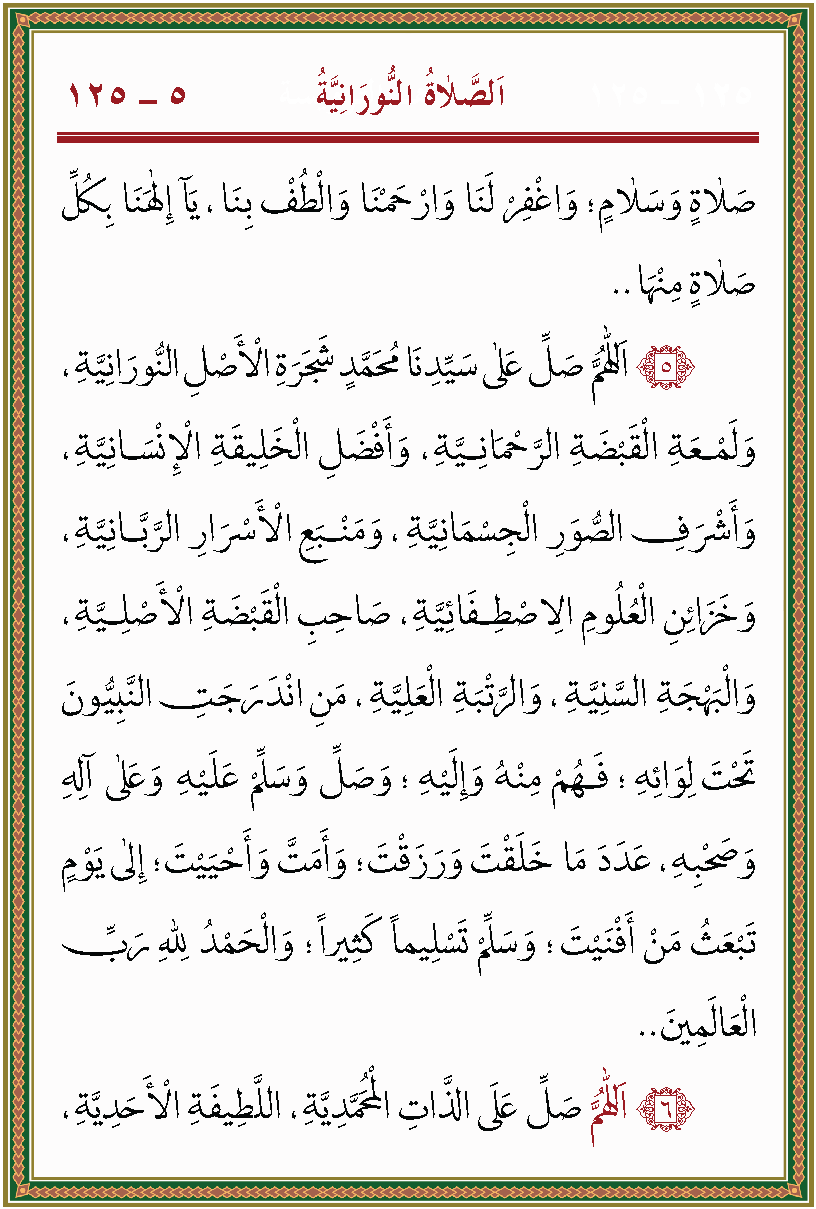 اَلصَّلٰاةُ النُّورَانِيَّةُ ٥ ــ ١٢٥
صَلٰاةٍ وَسَلٰامٍ ؛ وَاغْفِرْ لَنَا وَارْحَمْنَا وَالْطُفْ بِنَا ، يَآ إِلٰهَنَا بِكُلِّ
صَلٰاةٍ مِنْهَا ..
٥ اَللّٰهُمَّ صَلِّ عَلٰى سَيِّدِنَا مُحَمَّدٍ شَجَرَةِ الْأَصْلِ النُّورَانِيَّةِ ،
وَلَمْعَةِ الْقَبْضَةِ الرَّحْمَانِيَّةِ ، وَأَفْضَلِ الْخَلِيقَةِ الْإِنْسَانِيَّةِ ،
وَأَشْرَفِ الصُّوَرِ الْجِسْمَانِيَّةِ ، وَمَنْبَعِ الْأَسْرَارِ الرَّبَّانِيَّةِ ،
وَخَزَائِنِ الْعُلُومِ الِاصْطِفَائِيَّةِ ، صَاحِبِ الْقَبْضَةِ الْأَصْلِيَّةِ ،
وَالْبَهْجَةِ السَّنِيَّةِ ، وَالرُّتْبَةِ الْعَلِيَّةِ ، مَنِ انْدَرَجَتِ النَّبِيُّونَ
تَحْتَ لِوَائِهِ ؛ فَهُمْ مِنْهُ وَإِلَيْهِ ؛ وَصَلِّ وَسَلِّمْ عَلَيْهِ وَعَلٰى آلِهِ
وَصَحْبِهِ ، عَدَدَ مَا خَلَقْتَ وَرَزَقْتَ ؛ وَأَمَتَّ وَأَحْيَيْتَ ؛ إِلٰى يَوْمٍ
تَبْعَثُ مَنْ أَفْنَيْتَ ؛ وَسَلِّمْ تَسْلِيماً كَثِيراً ؛ وَالْحَمْدُ لِلّٰهِ رَبِّ
الْعَالَمِينَ ..
٦ اَللّٰهُمَّ صَلِّ عَلَى الذَّاتِ الْمُحَمَّدِيَّةِ ، اللَّطِيفَةِ الْأَحَدِيَّةِ ،